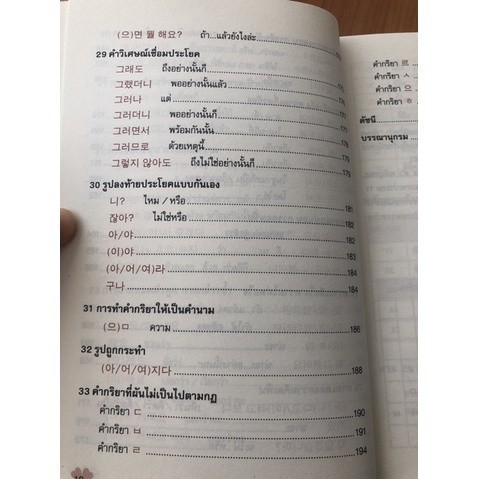 (으)면 뭘 해요? ถ้า...แล้วยังไงล่ะ
29 คำวิเศษณ์เชื่อมประโยค
그래도 ถึงอย่างนั้นก็
그랬더니 พออย่างนั้นแล้ว
그러나 แต่
그러더니 พออย่างนั้นก็
그러면서 พร้อมกันนั้น
그러므로 ด้วยเหตุนี้ 179
그렇지 않아도 ถึงไม่ใช่อย่างนั้นก็ 179
30 รูปลงท้ายประโยคแบบกันเอง
니? ไหม / หรือ 181
잖아? ไม่ใช่หรือ 182
아/야 182
(이)야 183
(아/어/여)라 184
구나 184
31 การทำคำกริยาให้เป็นคำนาม
(으)ㅁ ความ 186
32 รูปถูกกระทำ
(아/어/여)지다 188
33 คำกริยาที่ผันไม่เป็นไปตามกฎ
คำกริยา ㄷ 190
คำกริยา ㅂ 191
คำกริยา ㄹ 194
คำกริยา 르
คำกริยา ㅅ
คำกริยา 으
คำกริยา ㅎ
ดัชนี
บรรณานุกรม